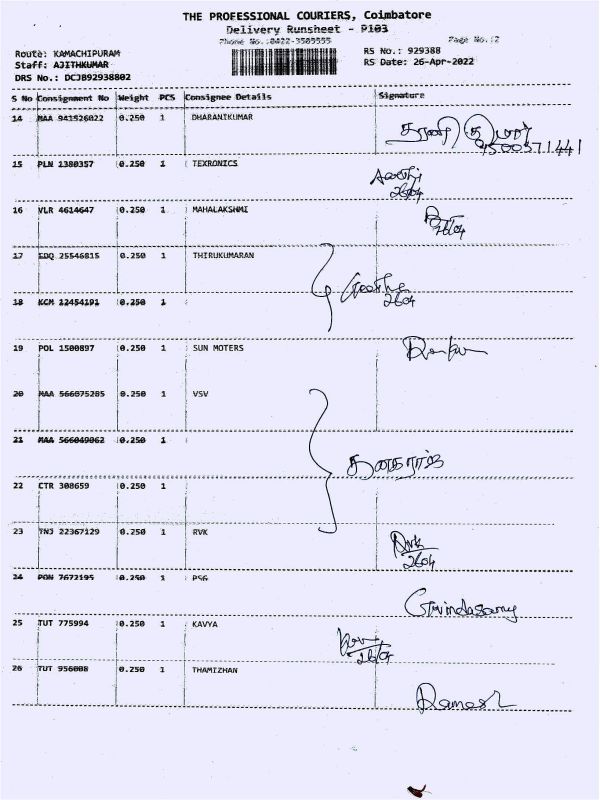 THE PROFESSIONAL COURIERS, Coimbatore
Delivery Runsheet - P103
Phone No.:0422-3505555 Page No.:2
Route: KAMACHIPURAM RS No.: 929388
Staff: AJITHKUMAR RS Date: 26-Apr-2022
DRS No.: DCJB92938802
S No Consignment No Weight PCS Consignee Details Signature
14 MAA 941526022 0.250 1 DHARANIKUMAR தரணி குமார்
9500571441
15 PLN 1380357 0.250 1 TEXRONICS
26/04
16 VLR 4614647 0.250 1 MAHALAKSHMI
26/04
17 EDQ 25546815 0.250 1 THIRUKUMARAN
18 KCM 12454191 0.250 1
26/04
19 POL 1500897 0.250 1 SUN MOTERS
20 MAA 566075285 0.250 1 VSV
21 MAA 566049062 0.250 1
கனகராஜ்
22 CTR 308659 0.250 1
23 TNJ 22367129 0.250 1 RVK
26/04
24 PON 7672195 0.250 1 PSG
Govindasamy
25 TUT 775994 0.250 1 KAVYA
26/04
26 TUT 956008 0.250 1 THAMIZHAN
Ramesh